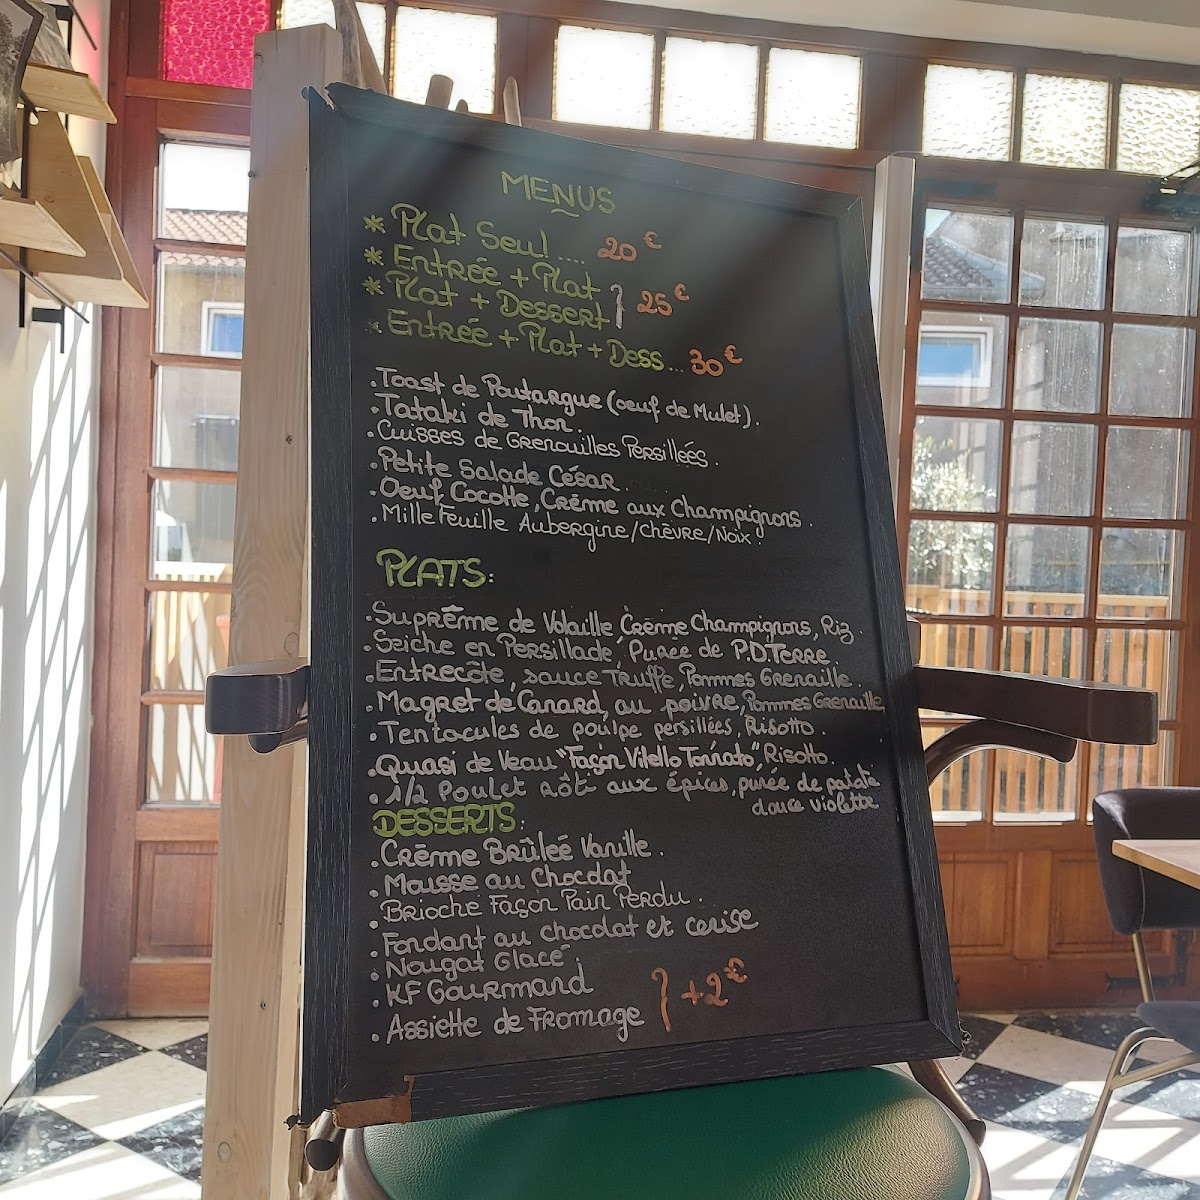 MENUS
* Plat Seul .... 20€
* Entrée + Plat
* Plat + Dessert } 25€
* Entrée + Plat + Dess... 30€
. Toast de Poutargue (oeuf de Mulet).
. Tataki de Thon.
. Cuisses de Grenouilles Persillées.
. Petite Salade César.
. Oeuf Cocotte, Crème aux Champignons.
. Mille Feuille Aubergine/Chèvre/Noix.
PLATS:
. Suprême de Volaille Crème Champignons, Riz.
. Seiche en Persillade, Purée de P.D.Terre.
. Entrecôte, sauce Truffe, Pommes Grenaille.
. Magret de Canard, au poivre, Pommes Grenaille
. Tentacules de poulpe persillées, Risotto.
. Quasi de Veau "Façon Vitello Tonnato", Risotto.
. 1/2 Poulet rôti aux épices, purée de patate
douce violette
DESSERTS:
. Crème Brûleé Vanille.
. Mousse au Chocolat
. Brioche Façon Pain Perdu.
. Fondant au chocolat et cerise
. Nougat Glacé.
. KF Gourmand
. Assiette de Fromage } +2€